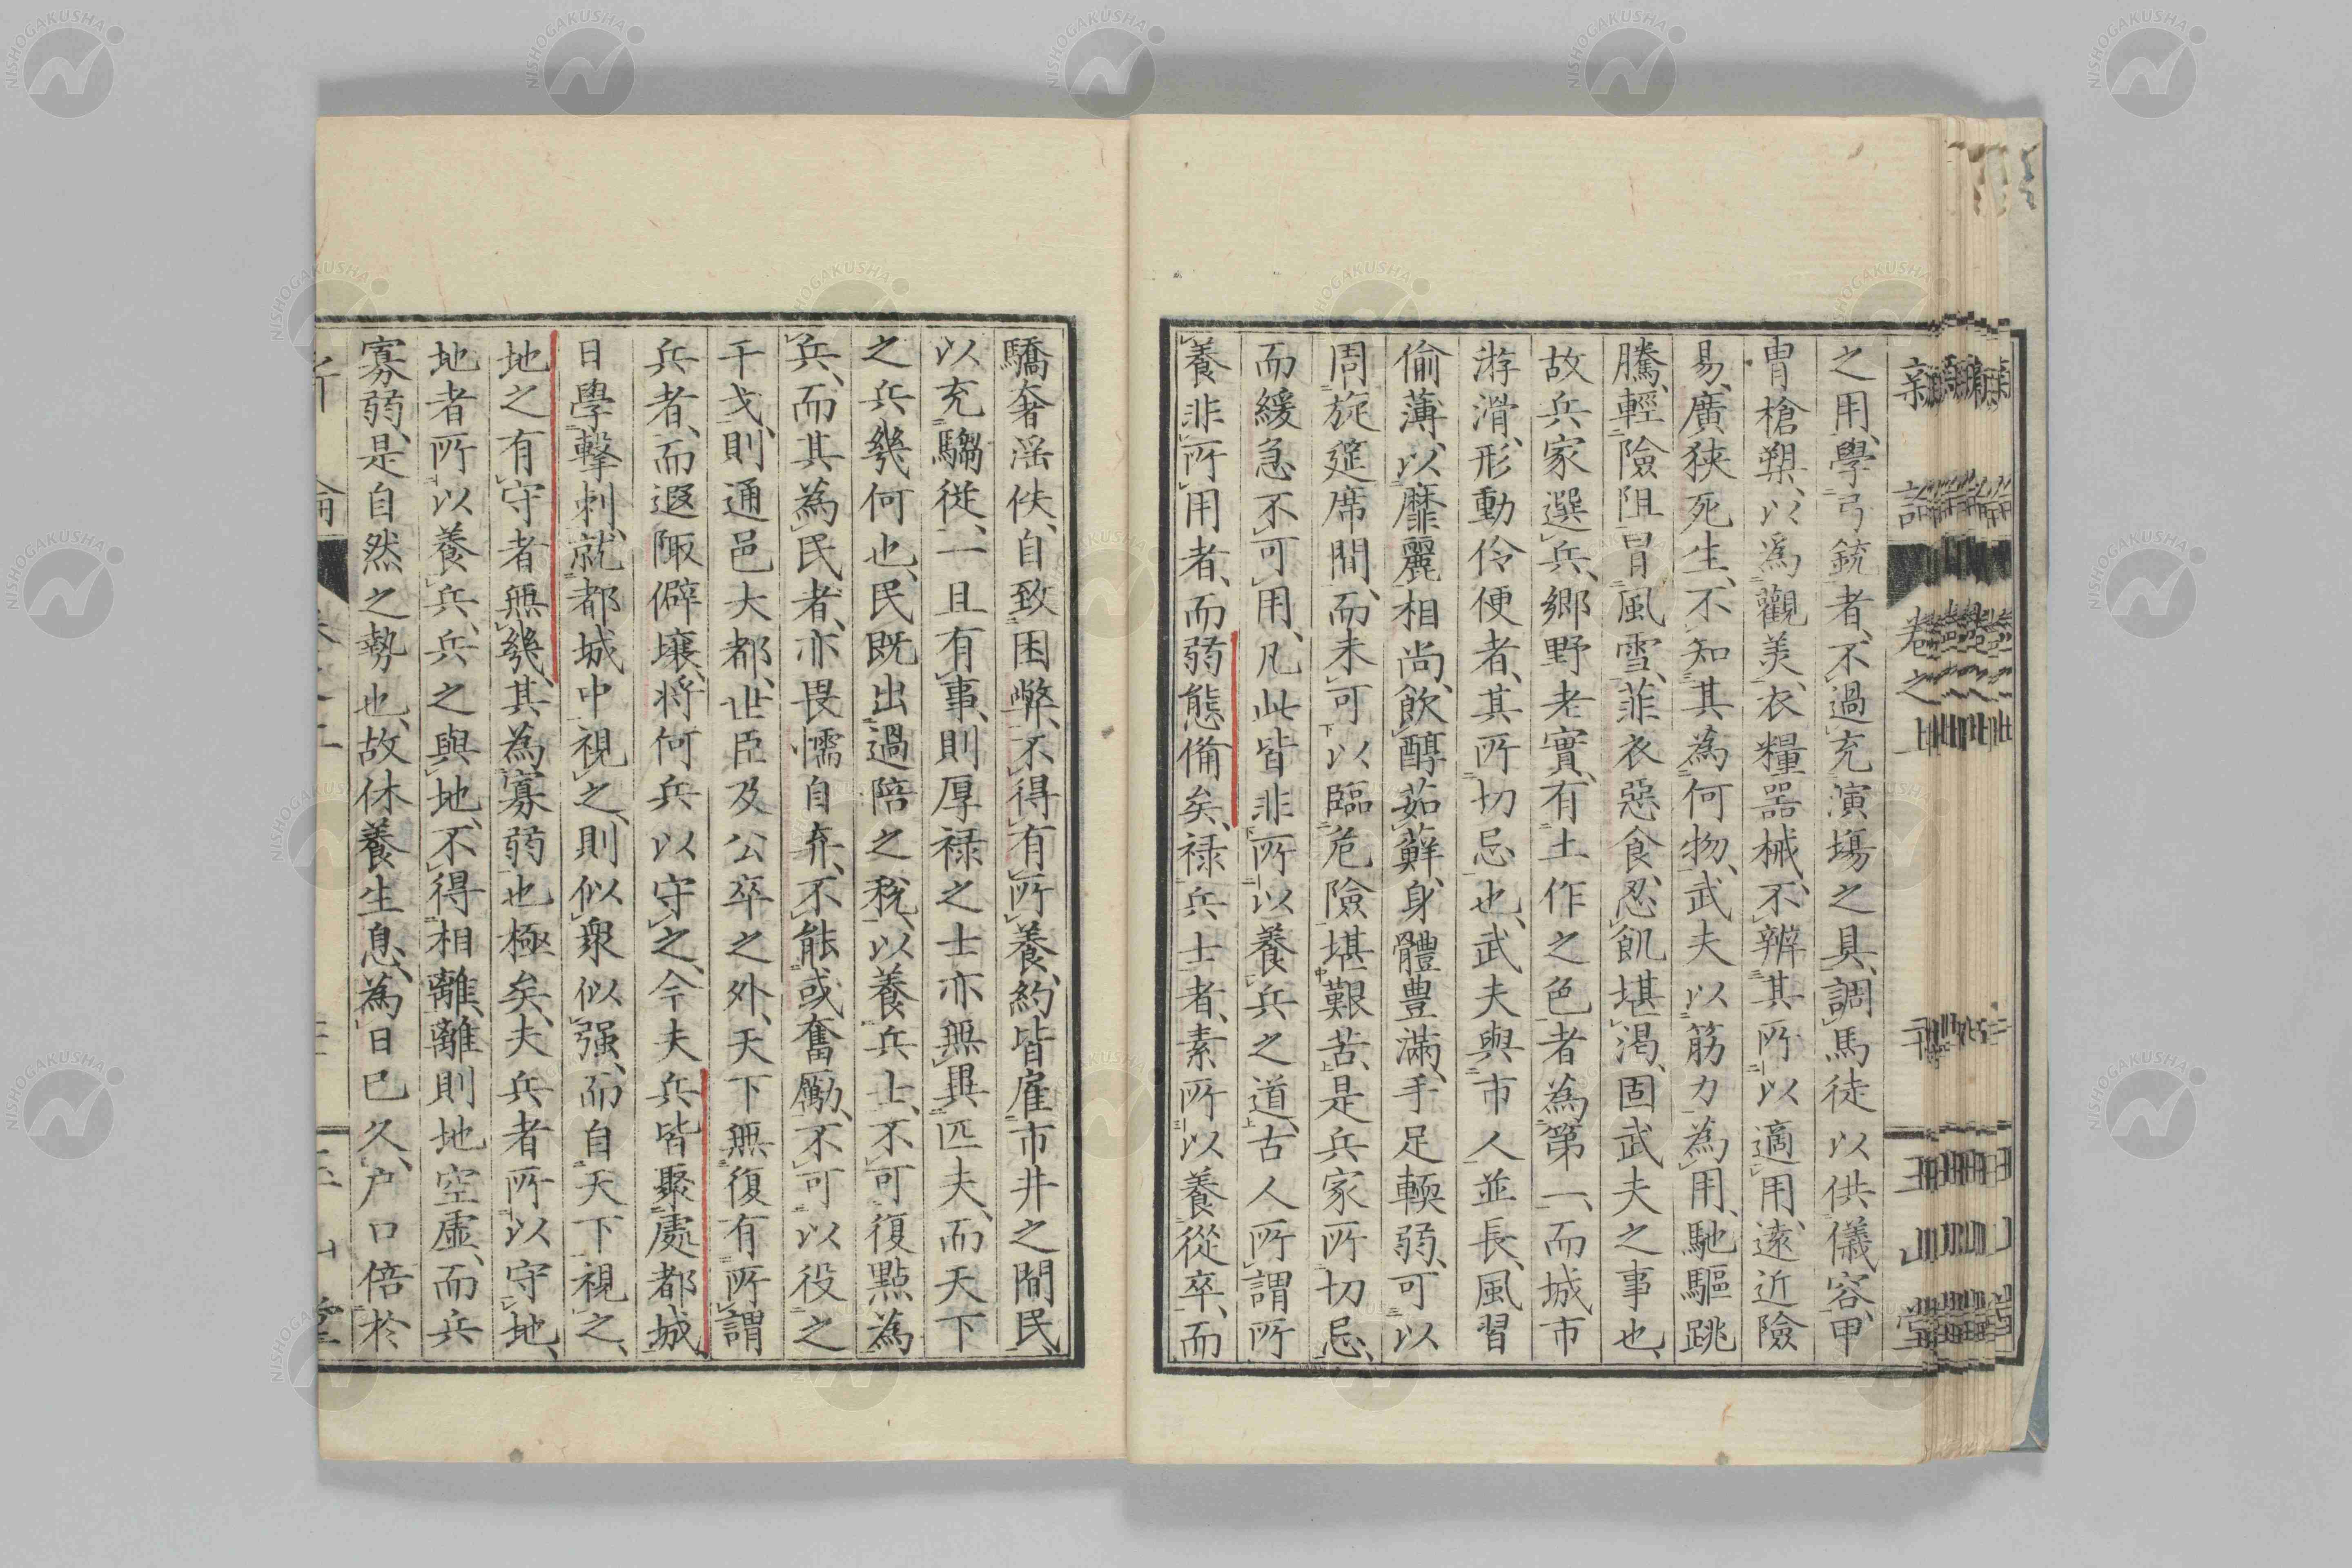 之用、學弓銃者、不過充演場之具、調馬徒以供儀容、甲
冑槍槊、以爲觀美、衣糧器械、不辨其所以適用、遠近險
易、廣狹死生、不知其為何物、武夫以筋力為用、馳驅跳
騰、輕險阻冒風雪、菲衣惡食、忍飢堪渴、固武夫之事也、
故兵家選兵、鄉野老實、有土作之色者為第一、而城市
游滑、形動伶便者、其所切忌也、武夫與市人並長、風習
偷薄、以靡麗相尚、飲醇茹鮮、身體豊滿、手足輭弱、可以
周旋筵席間、而未可以臨危險堪艱苦、是兵家所切忌、
而緩急不可用、凡此皆非所以養兵之道、古人所謂所
養非所用者、而弱態備矣、禄兵士者、素所以養從卒、而
驕奢淫佚、自致困弊、不得有所養、約皆雇市井之間民、
以充騶從、一旦有事、則厚禄之士亦無異匹夫、而天下
之兵幾何也、民既出過陪之稅、以養兵士、不可復點為
兵、而其為民者、亦畏懦自弃、不能或奮勵、不可以役之
干戈、則通邑大都、世臣及公卒之外、天下無復有所謂
兵者、而遐陬僻壤、將何兵以守之、今夫兵皆聚處都城
日學擊刺、就都城中視之、則似衆似强、而自天下視之、
地之有守者無幾、其為寡弱也極矣、夫兵者所以守地、
地者所以養兵、兵之與地、不得相離、離則地空虛、而兵
寡弱、是自然之勢也、故休養生息、為日已久、户口倍於
新論 卷之上 玉山堂